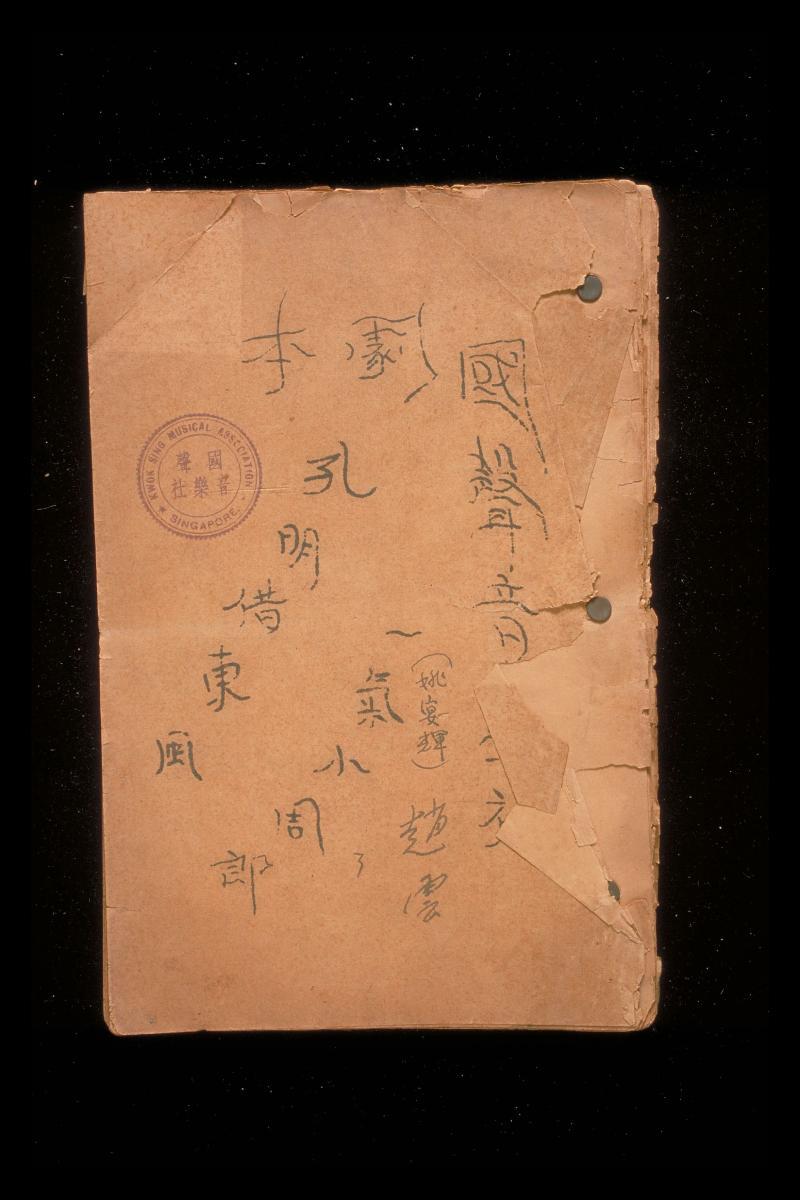 國聲音
劇本
孔明借東風
一氣小周郎
(姚宴輝)
趙雲
KWOK SING MUSICAL ASSOCIATION
國聲
音樂社
SINGAPORE